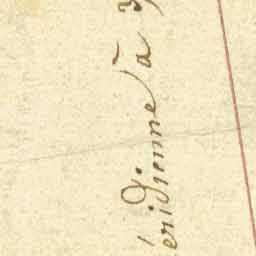 éridienne à